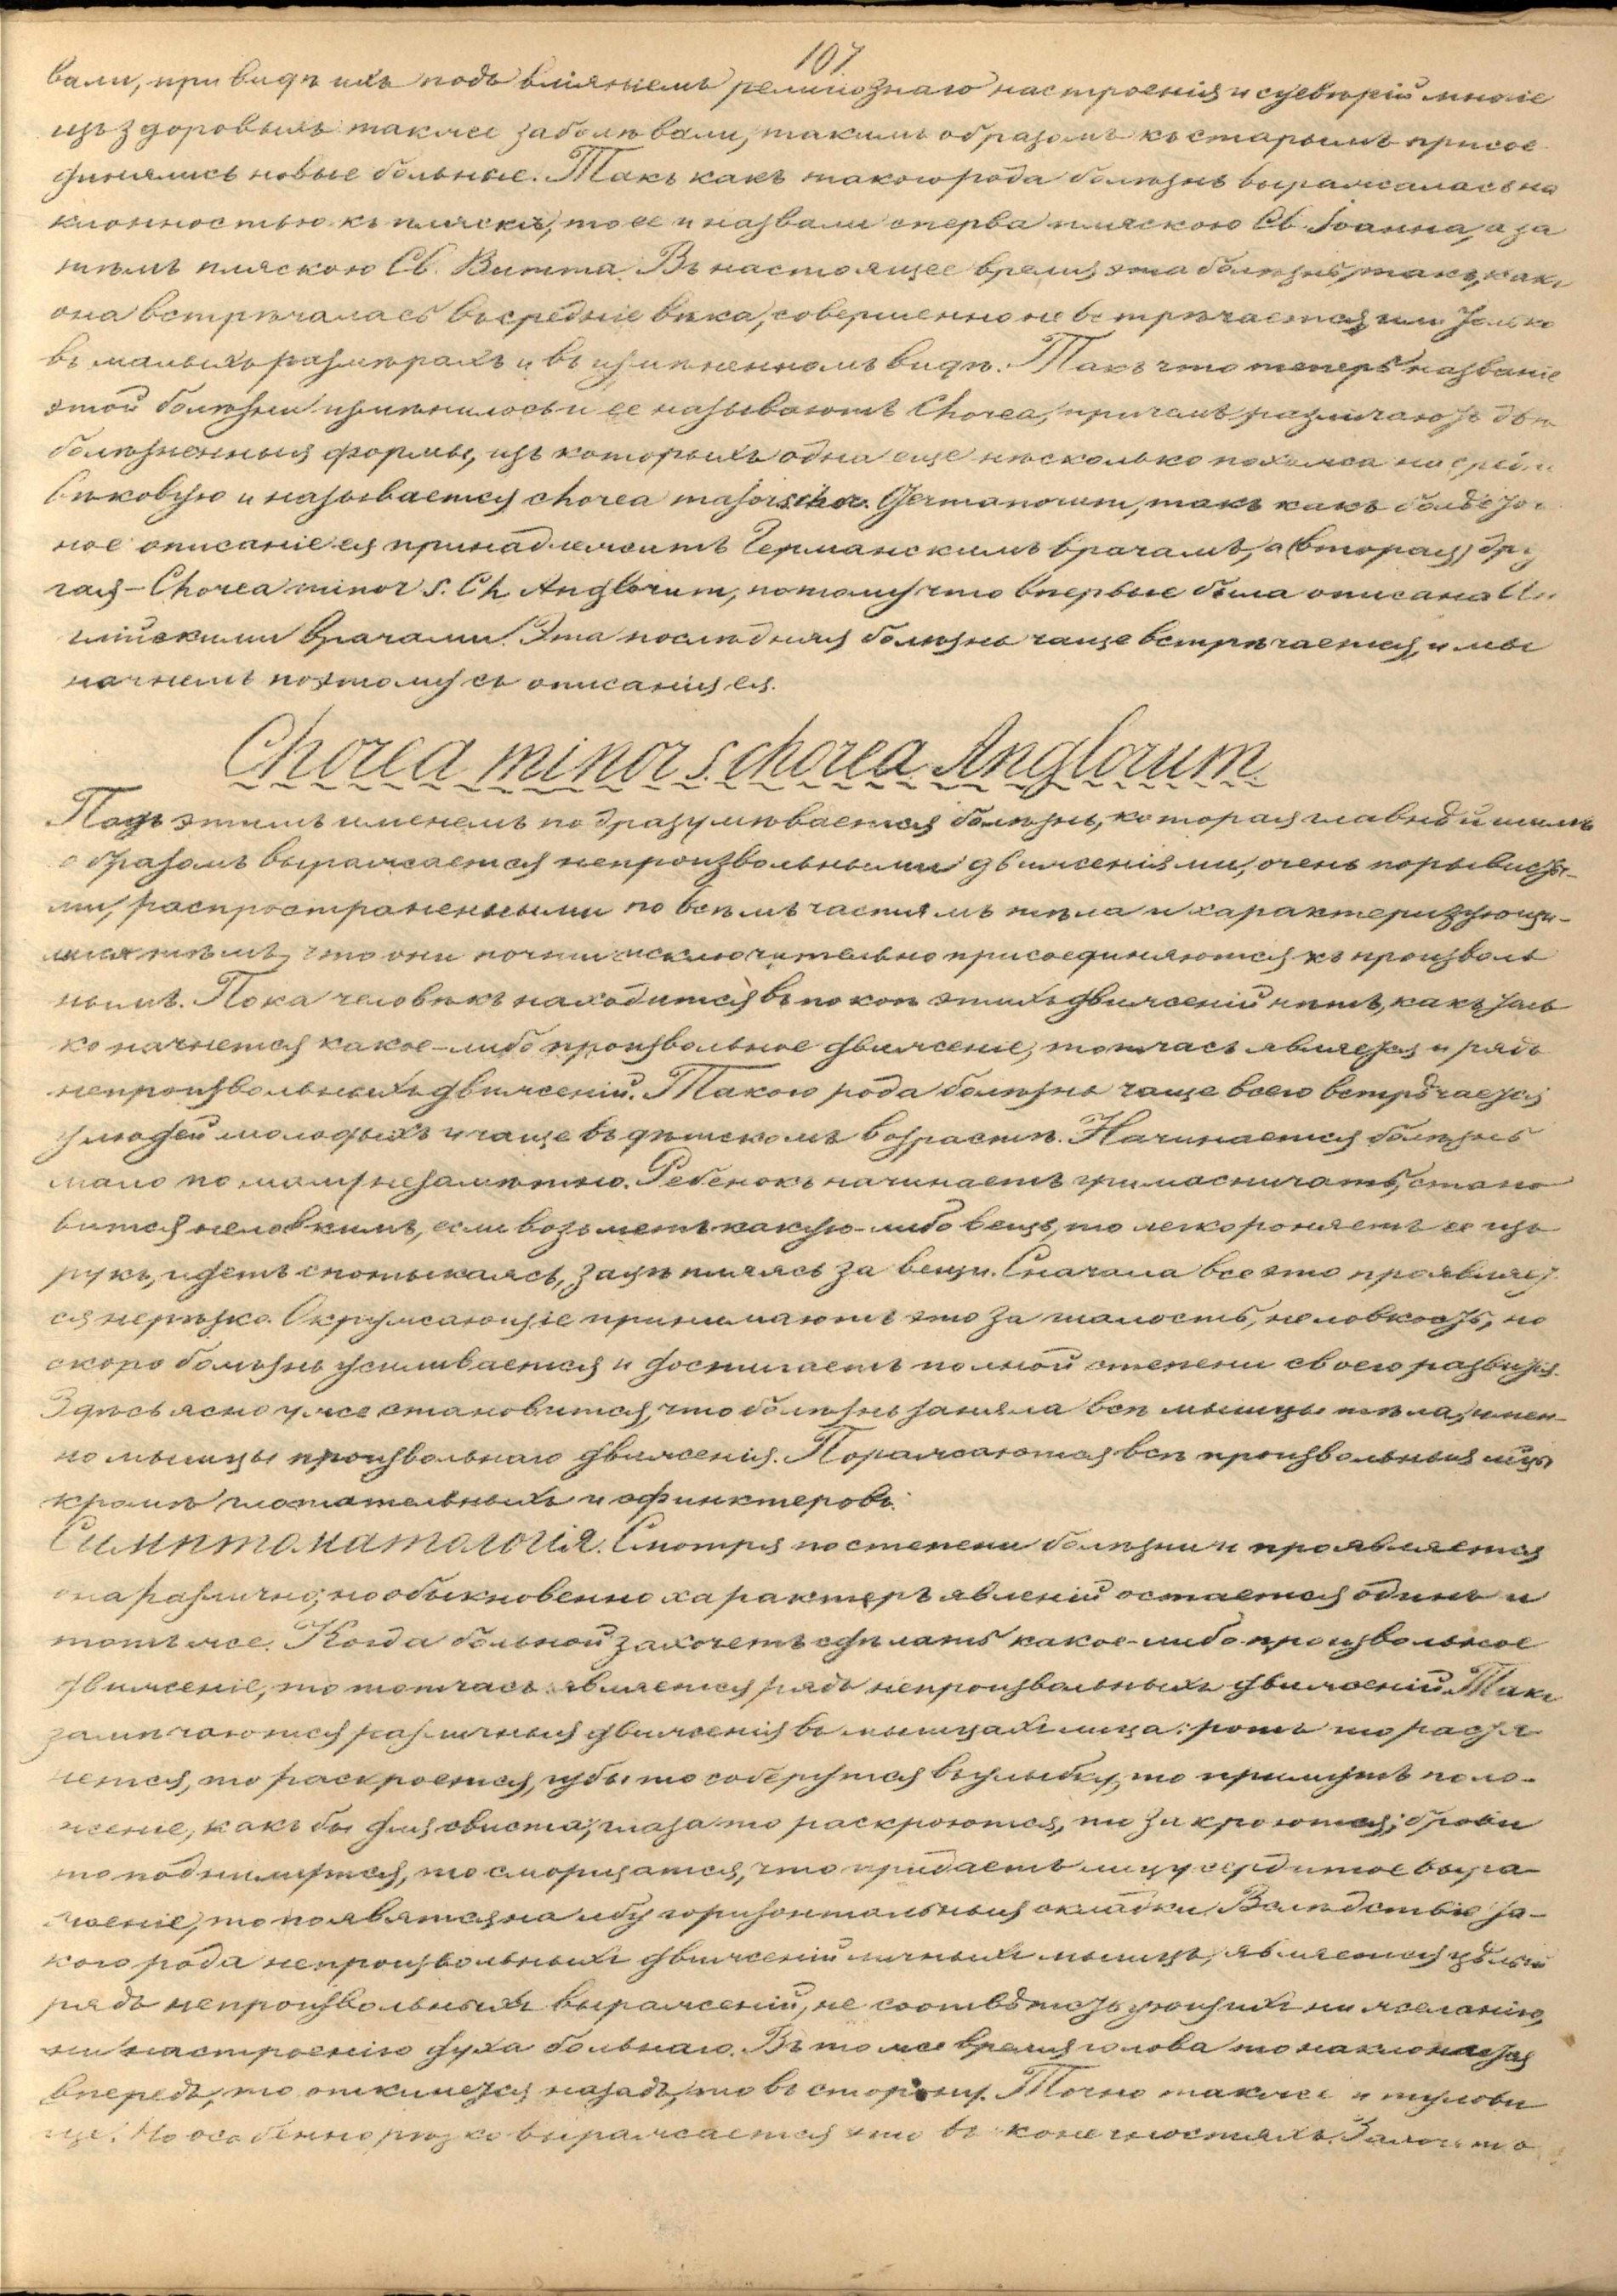 107.
вали, при видѣ ихъ подъ влiянiемъ религiознаго настроенiя и суевѣрiй многiе
изъ здоровыхъ также заболѣвали, такимъ образомъ къ старымъ присое
динялись новые больные. Такъ какъ такого рода болѣзнь выражалась на
клонностью къ пляскѣ, то ее и назвали сперва пляскою Св. Iоанна, а за
тѣмъ пляскою Св. Витта. Въ настоящее время эта болѣзнь, такъ, какъ
она встрѣчалась въ среднiе вѣка, совершенно не встрѣчается, или только
въ малыхъ размѣрахъ и въ измѣненномъ видѣ. Такъ что теперь названiе
этой болѣзни измѣнилось и ее называютъ Chorea, причемъ различаютъ двѣ
болѣзненныя формы, изъ которыхъ одна еще нѣсколько похожа на средне
вѣковую и называется chorea major s. chor. Germanorum, такъ какъ
ное описанiе ея принадлежитъ Германскимъ врачамъ, а (вторая) дру
гая – Chorea minor s. Ch. Anglorum, потому что впервые была описана Ан
глiйскими врачами. Эта послѣдняя болѣзнь чаще встрѣчается, и мы
начнемъ поэтому съ описанiя ея.
Chorea minor s. chorea Anglorum.
Подъ этимъ именемъ подразумѣвается болѣзнь, которая главнѣйшимъ
образомъ выражается непроизвольными движенiями, очень порывисты-
ми, распространенными по всѣмъ частямъ тѣла и характеризующи-
мися тѣмъ, что они почти исключительно присоединяются къ произволь
нымъ. Пока человѣкъ находится въ покоѣ этихъ движенiй нѣтъ, какъ толь
ко начнется какое-либо произвольное движенiе, тотчасъ является и рядъ
непроизвольныхъ движенiй. Такого рода болѣзнь чаще всего встрѣчается
у людей молодыхъ и чаще въ дѣтскомъ возрастѣ. Начинается болѣзнь
мало по малу незамѣтно. Ребенокъ начинаетъ гримасничать, стано
вится неловкимъ, если возьметъ какую-либо вещь, то легко роняетъ ее изъ
рукъ, идетъ спотыкаясь, зацѣпляясь за вещи. Сначала все это проявляет
ся нерѣзко. Окружающiе принимаютъ это за шалость, неловкость, но
скоро болѣзнь усиливается и достигаетъ полной степени своего развитiя.
Здѣсь ясно уже становится, что болѣзнь заняла всѣ мышцы тѣла, имен-
но мышцы произвольнаго движенiя. Поражаются всѣ произвольныя мцы
кромѣ глотательныхъ и сфинктеровъ.
Симптоматологiя. Смотря по степени болѣзни и проявляется
она различно, но обыкновенно характеръ явленiй остается одинъ и
тотъ же. Когда больной захочетъ сдѣлать какое-либо произвольное
движенiе, то тотчасъ является рядъ непроизвольныхъ движенiй. Такъ
замѣчаются различныя движенiя въ мышцахъ лица: ротъ то растя
нется, то раскроется, губы то соберутся въ улыбку, то примутъ поло-
женiе, какъ бы для свиста; глаза то раскроются, то закроются; брови
то поднимутся, то сморщатся, что придаетъ лицу сердитое выра-
женiе, то появятся на лбу горизонтальныя складки. Вслѣдствiе та-
кого рода непроизвольныхъ движенiй личныхъ мышцъ, является цѣлый
рядъ непроизвольныхъ выраженiй, не соотвѣтствующихъ ни желанiю,
ни настроенiю духа больнаго. Въ то же время голова то наклонится
впередъ, то откинется назадъ, то въ сторону. Точно также и тулови
ще. Но особенно рѣзко выражается это въ конечностяхъ.